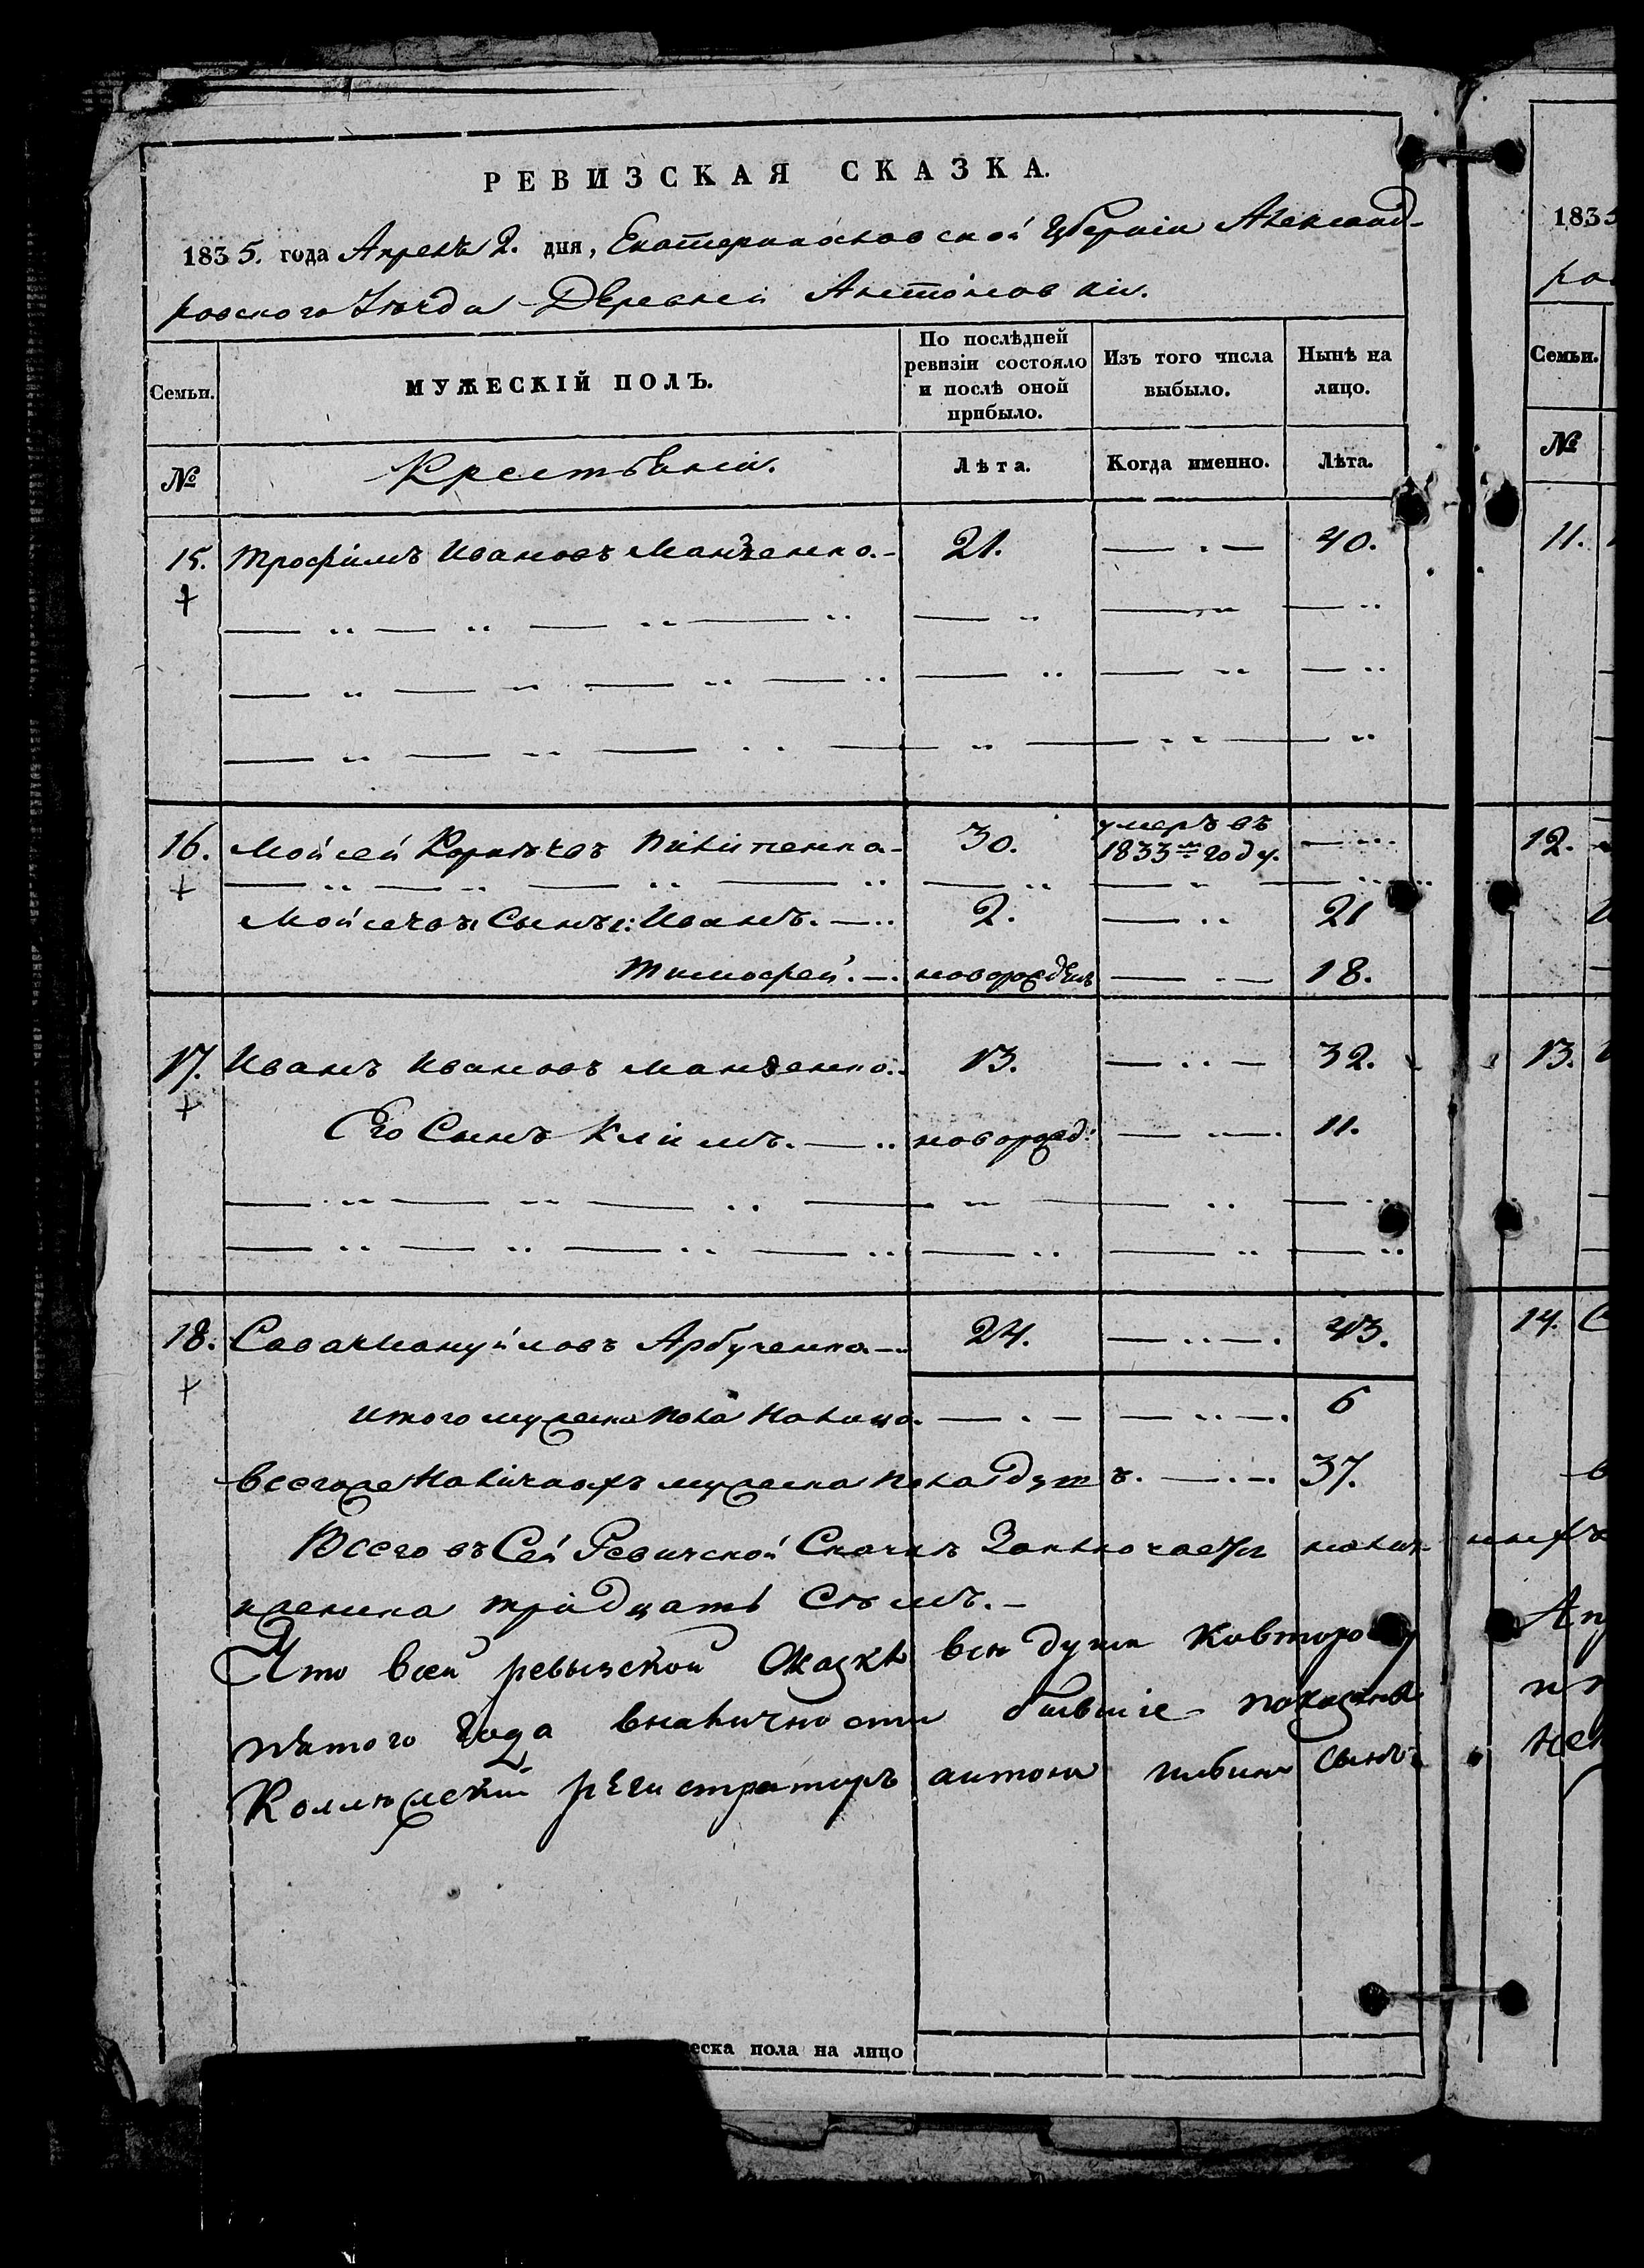 РЕВИЗСКАЯ СКАЗКА.
1835. года Апреля 2. дня, Екатеринославской Губерніи Александ-
ровского Уезда Деревней Антоновки.
Семьи.
МУЖЕСКІЙ ПОЛЪ.
По послѣдней ревизіи состояло и послѣ оной прибыло.
Изъ того числа выбыло.
Нынѣ на лицо.
№
Крестьяне.
Лѣта.
Когда именно.
Лѣта.
15. Трофимъ Ивановъ Манзенко. 21. 40.
16. Мойсей Корнѣевъ 30. умеръ въ 1833м году.
Мойсеевы Сынъı: Иванъ. 2. 21
Тимофей. новорожденъ 18.
17. Иванъ Ивановъ Манзенко. 13. 32.
Его Сынъ Климъ. новорожд: 11.
18. Сава Мануйловъ Арбузенко 24. 43.
Итого мужеска пола налицо. 6
Всегоже наличныхъ мужеска пола душъ. 37.
Всего въ Сей Ревизской Сказке Заключается налич-
тридцать Семъ.
Что всей ревызской Сказкѣ все души
пятого года вналичности бывшіе показаны
Коллежский регистраторъ антонъ сынъ
еска пола на лицо
1835
Семьи.
№
11.
12.
13.
14.